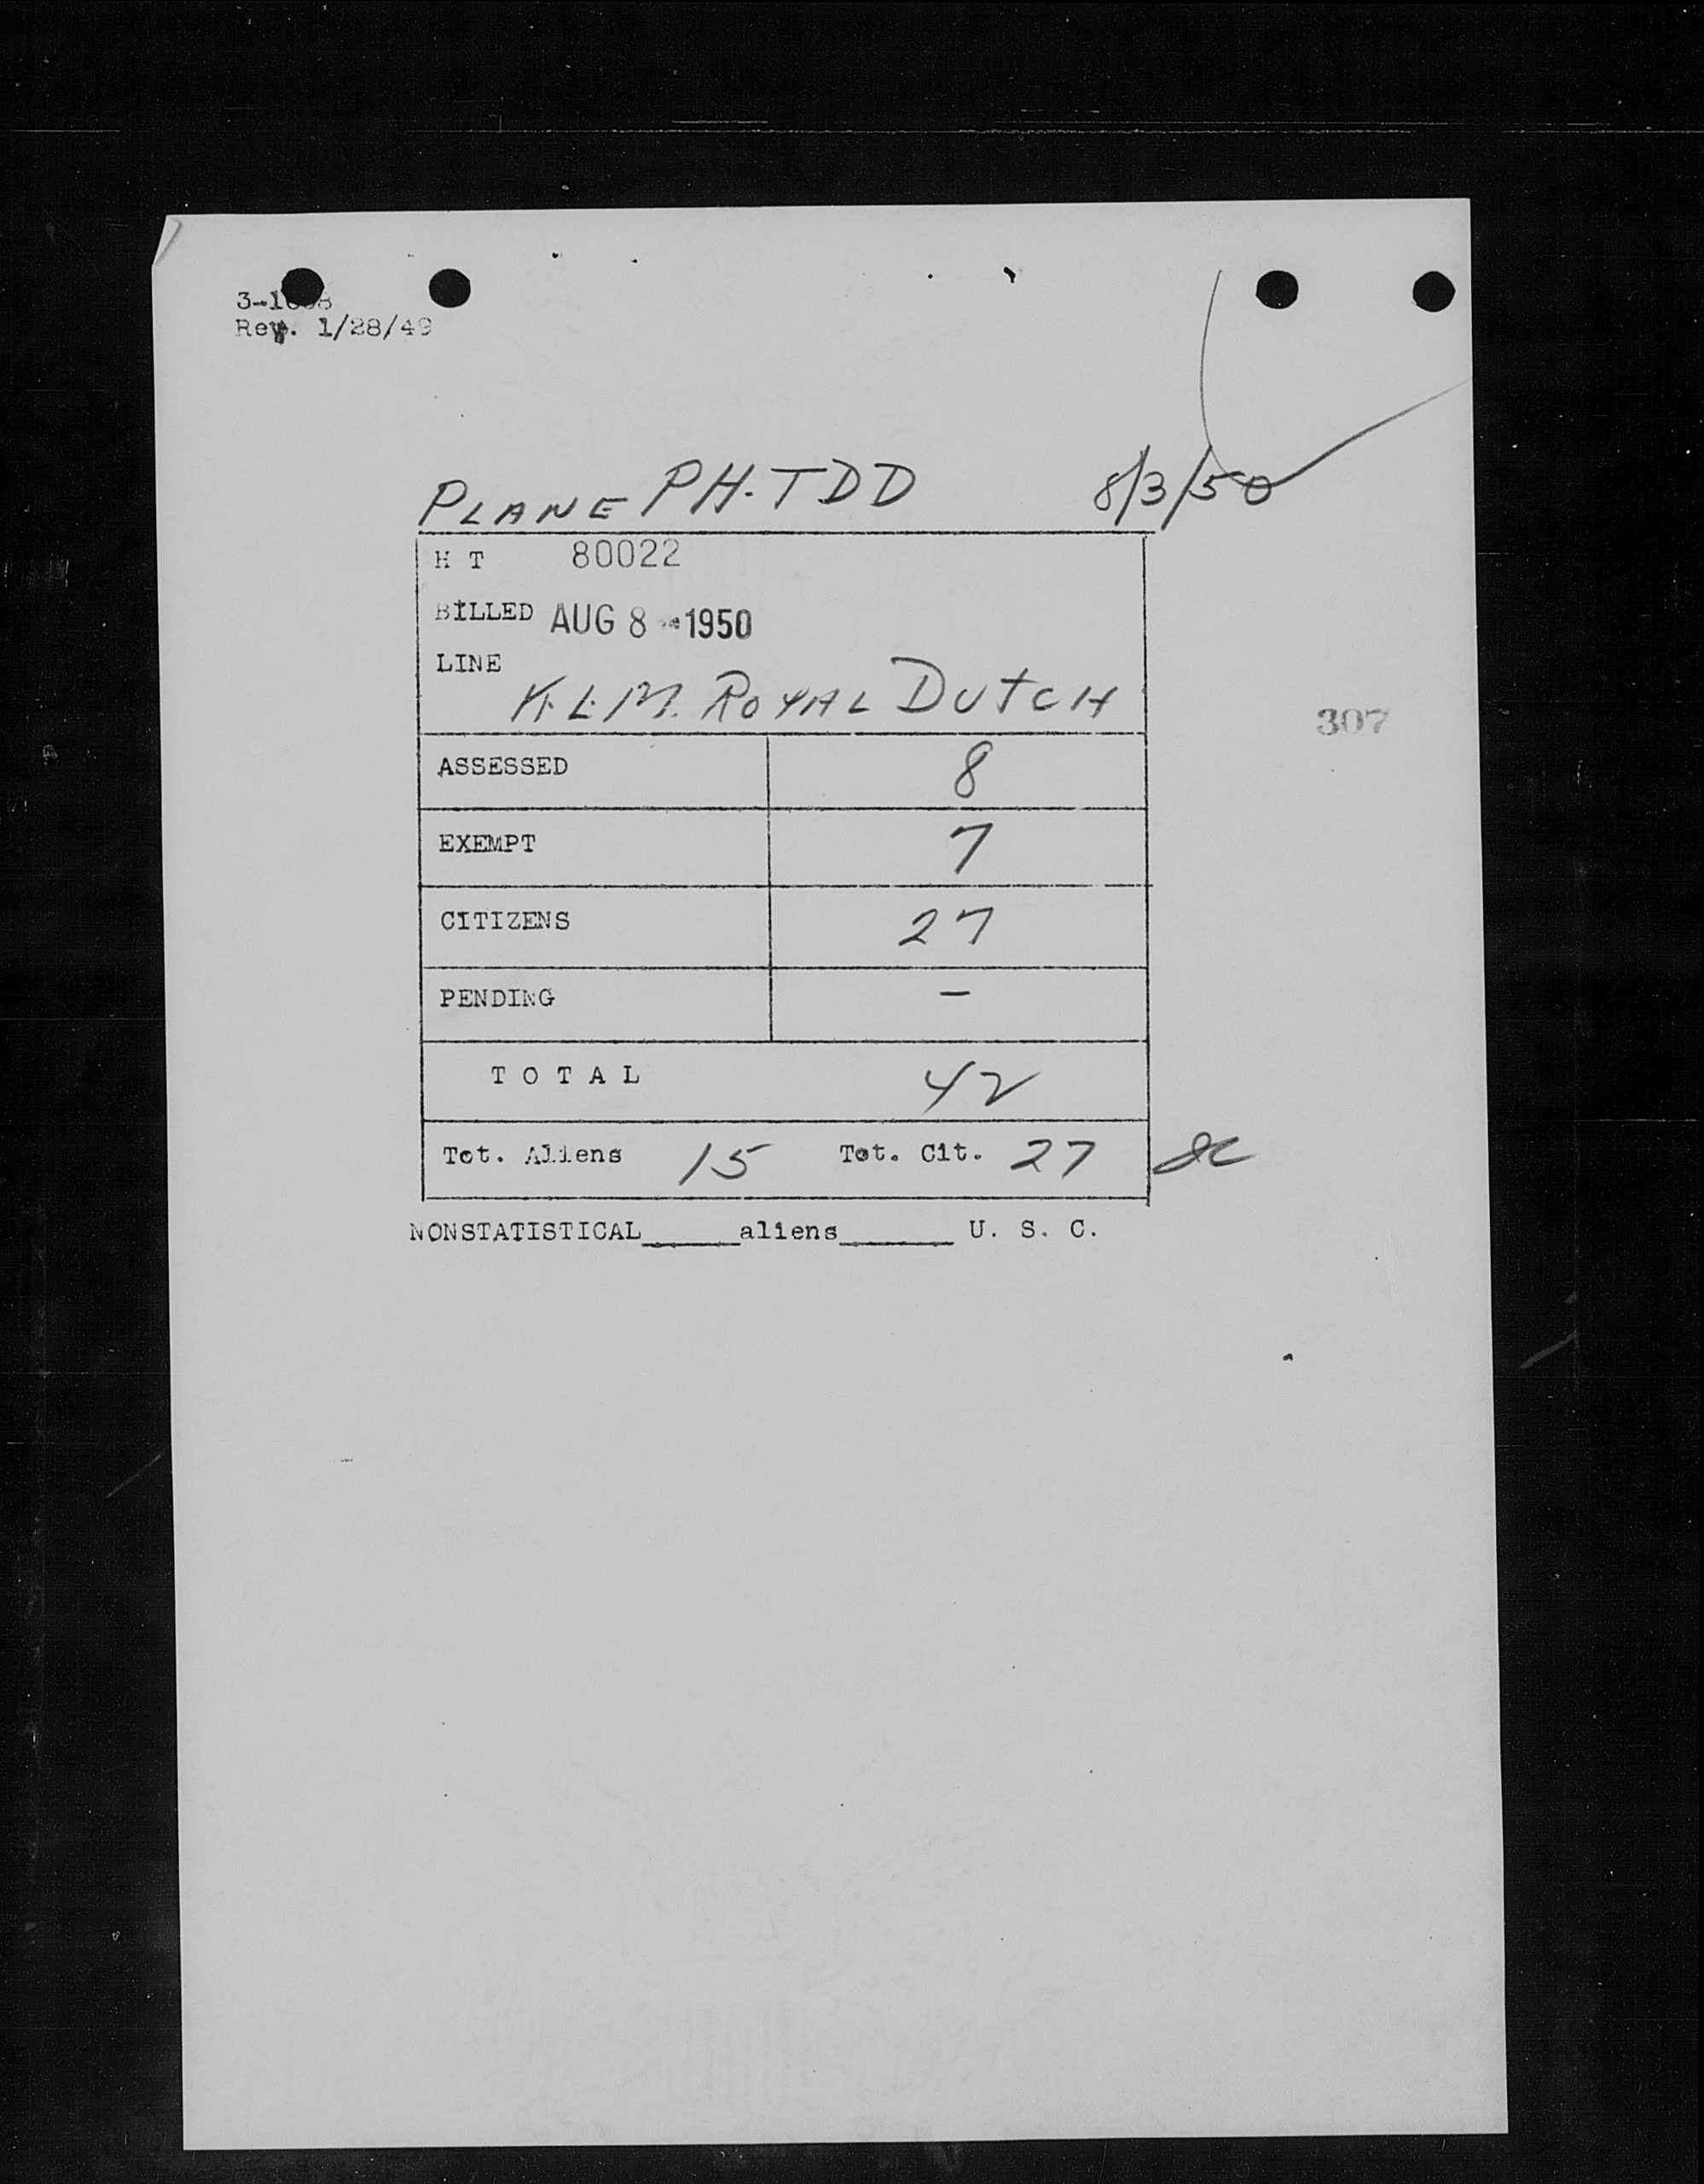 Rev. 1/28/49
PLANE PH-TDD 8/3/50
H T 80022
BILLED AUG 8 - 1950
LINE
K.L.M. ROYAL DUTCH
307
ASSESSED 8
EXEMPT 7
CITIZENS 27
PENDING —
T O T A L 42
Tot. Aliens 15 Tot. Cit. 27
NONSTATISTICAL_____aliens______ U. S. C.